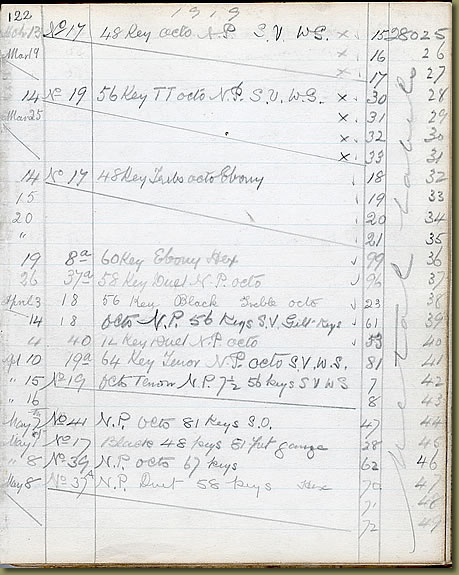 122 1919
Feb 13 No 17 48 Key octo N.P. S.V. W.G. x 15 28025
Mar 19 x 16 26
x 17 27
14 No 19 56 Key TT octo N.P. S.V. W.G. x 30 28
Mar 25 x 31 29
x 32 30
x 33 31
14 No 17 48 Key Treble octo Ebony ✓ 18 32
15 ✓ 19 33
20 ✓ 20 34
" ✓ 21 35
19 8a 60 Key Ebony Hex ✓ 99 36
26 37a 58 Key Duet N.P. octo ✓ 96 37
April 3 18 56 Key Black Treble octo ✓ 23 38
14 18 octo N.P. 56 Keys S.V. Gilt Keys ✓ 61 39
4 40 12 Key Duet N.P. octo ✓ 53 40
Apl 10 19a 64 Key Tenor N.P. octo S.V. W.S. 81 41
" 15 No 19 octo Tenor N.P. 7½ 56 keys S V W S 7 42
" 16 8 43
May 2 No 41 N.P. octo 81 Keys S.O. 47 44
May No 17 Black 48 keys 28 45
" 8 No 39 N.P. octo 67 keys 62 46
May 8 No 37a N.P. Duet 58 keys Hex 70 47
71 48
72 49